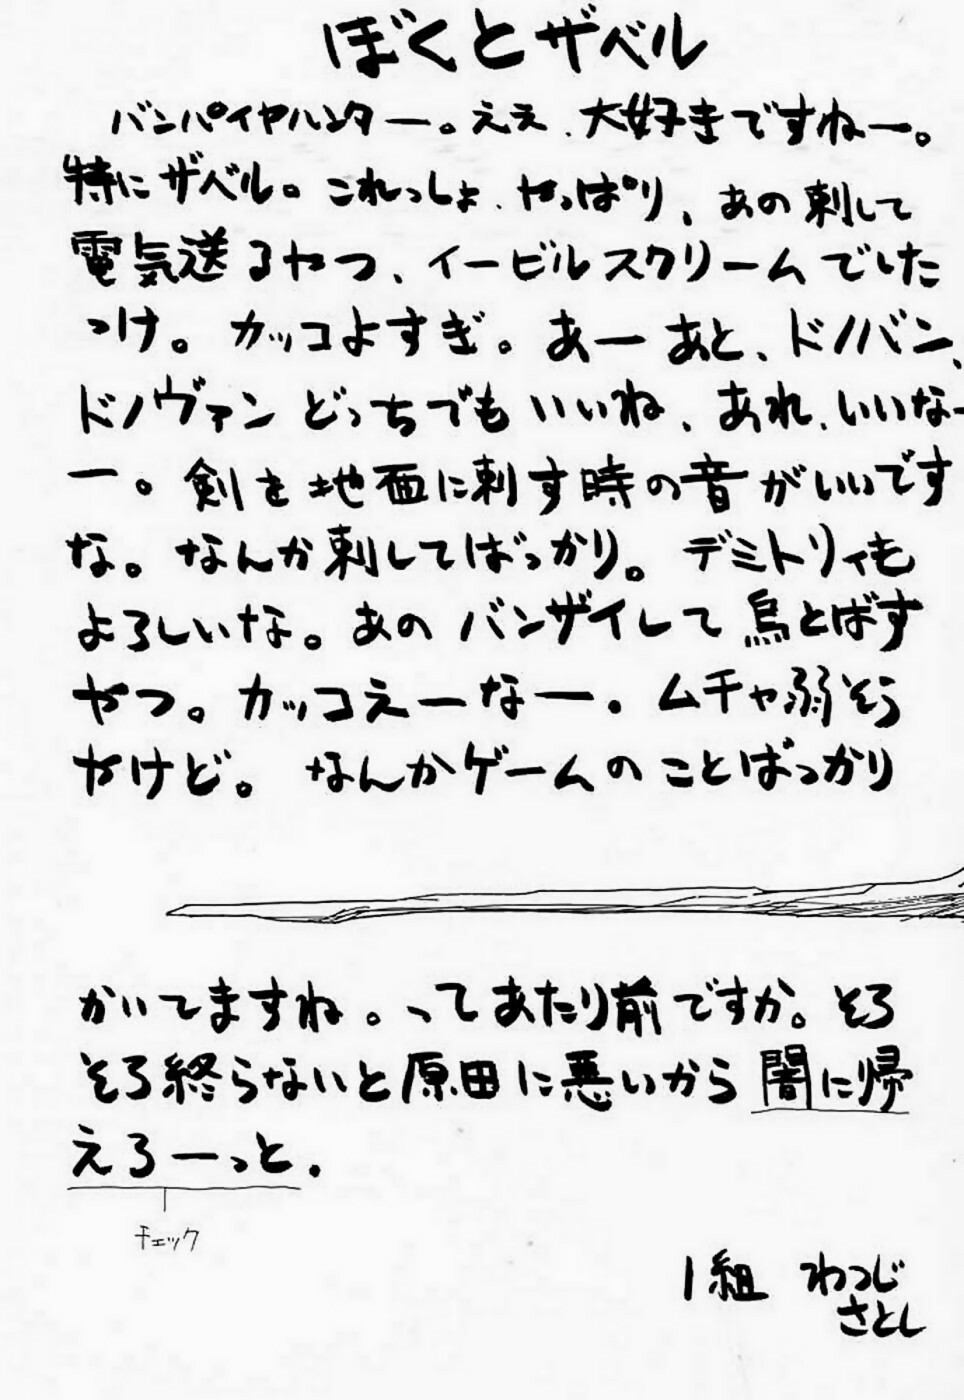 ぼくとザベル
バンパイヤハンター。ええ、大好きですねー。
特にザベル。これっしょ、やっぱり、あの刺して
電気送るやつ、イービルスクリームでした
っけ。カッコよすぎ。あーあと、ドノバン、
ドノヴァンどっちでもいいね、あれ、いいなー
ー。剣を地面に刺す時の音がいいです
な。なんか刺してばっかり。デミトリィも
よろしいな。あのバンザイして鳥とばす
やつ。カッコえーなー。ムチャ弱そう
やけど。なんかゲームのことばっかり
かいてますね。ってあたり前ですか。そろ
そろ終らないと原田に悪いから闇に帰
えろーっと。
チェック
1組 わつじ
さとし